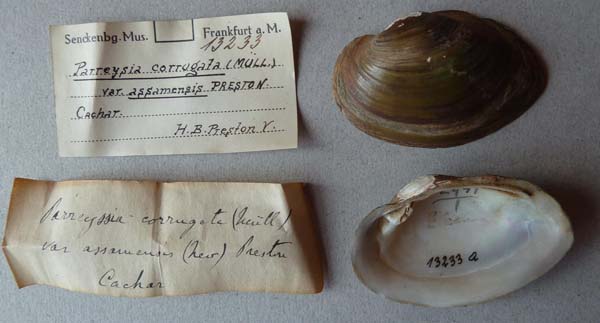 Senckenbg. Mus. Frankfurt a. M.
13233
Parreysia corrugata (MÜLL.)
var. assamensis PRESTON.
Cachar.
H.B. Preston V.
Parreyssia corrugata (Müll)
var assamensis (new) Preston
Cachar
13233 a